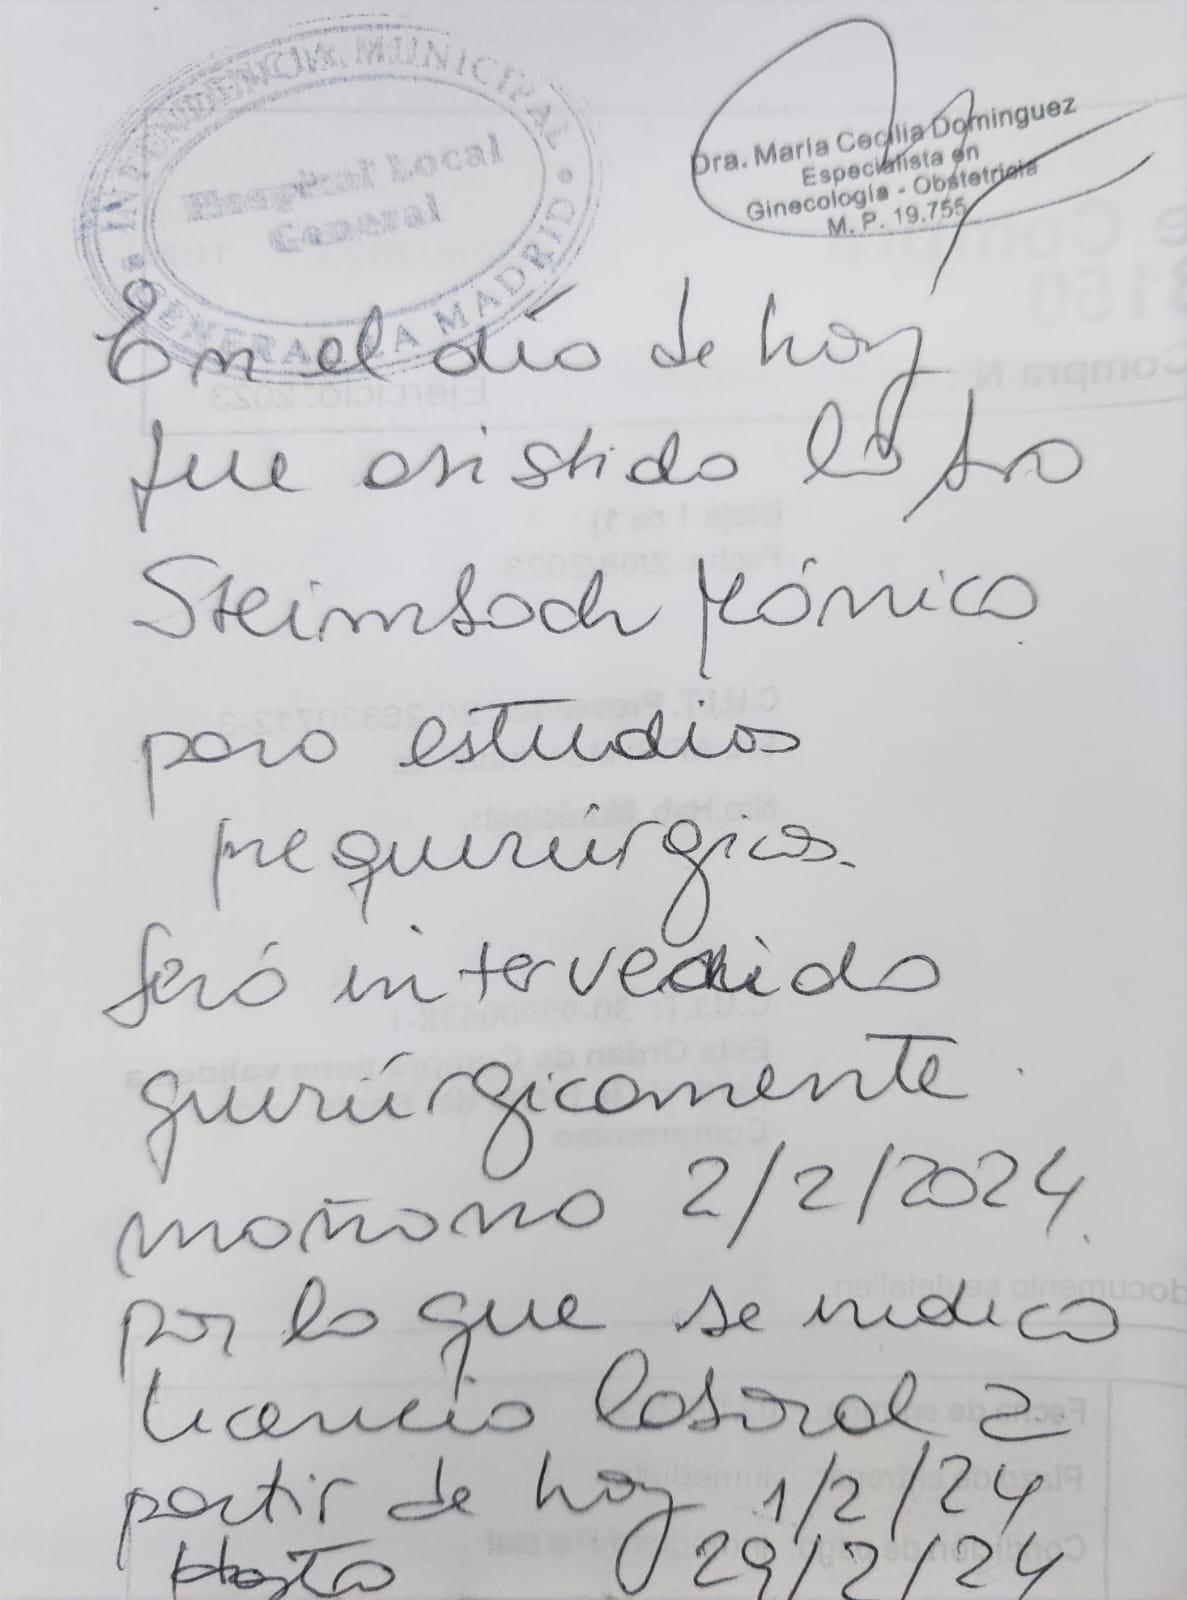 INTENDENCIA MUNICIPAL
Hospital Local
General
GENERAL LA MADRID
Dra. María Cecilia Dominguez
Especialista en
Ginecología - Obstetricia
M. P. 19.755
En el día de hoy
fue asistida la Sra
Steimbach Mónica
para estudios
prequirúrgicos.
Será intervenida
quirúrgicamente
mañana 2/2/2024.
por lo que se indica
licencia laboral a
partir de hoy 1/2/24
Hasta 29/2/24